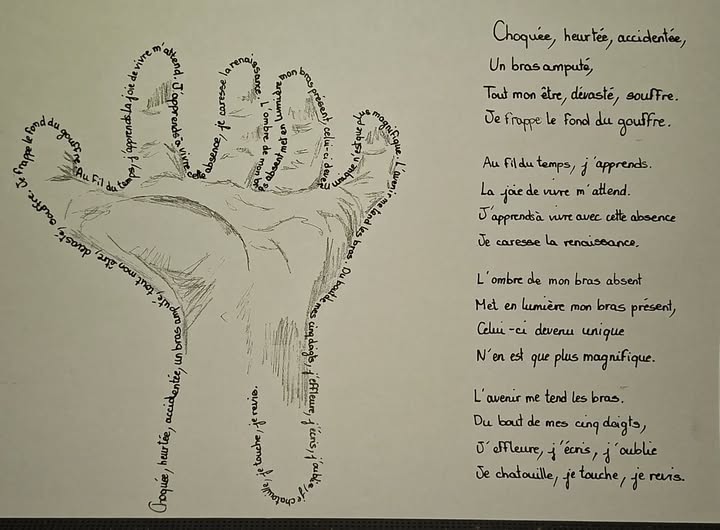 Choquée, heurtée, accidentée,
Un bras amputé,
Tout mon être, dévasté, souffre.
Je frappe le fond du gouffre.
Au fil du temps, j'apprends.
La joie de vivre m'attend.
J'apprends à vivre avec cette absence
Je caresse la renaissance.
L'ombre de mon bras absent
Met en lumière mon bras présent,
Celui-ci devenu unique
N'en est que plus magnifique.
L'avenir me tend les bras.
Du bout de mes cinq doigts,
J'effleure, j'écris, j'oublie
Je chatouille, je touche, je revis.
Choquée, heurtée, accidentée, un bras amputé, tout mon être, dévasté, souffre. Je frappe le fond du gouffre.
Au fil du temps, j'apprends. la joie de vivre m'attend. J'apprends à vivre
absence, je caresse la renaissance.
L'ombre de mon bras absent met en lumière mon bras présent, celui-ci devenu
unique n'en est que plus magnifique. L'avenir me tend les bras. Du bout de mes cinq doigts, j'effleure, j'écris, j'oublie, je chatouille, je touche, je revis.